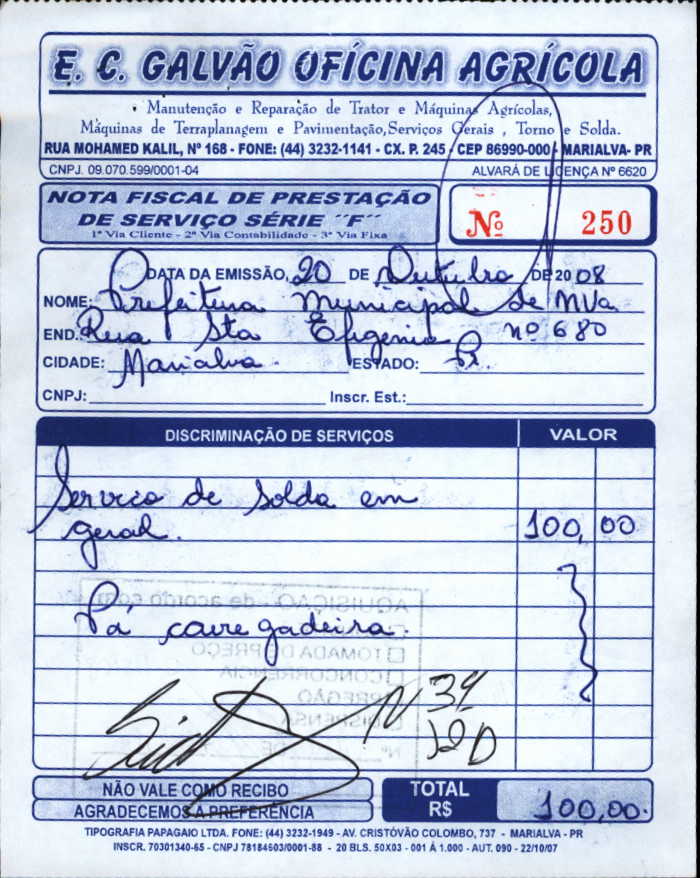 E. C. GALVÃO OFÍCINA AGRÍCOLA
Manutenção e Reparação de Trator e Máquinas Agrícolas,
Máquinas de Terraplanagem e Pavimentação, Serviços Gerais , Torno e Solda.
RUA MOHAMED KALIL, Nº 168 - FONE: (44) 3232-1141 - CX. P. 245 - CEP 86990-000 - MARIALVA- PR
CNPJ. 09.070.599/0001-04 ALVARÁ DE LICENÇA Nº 6620
NOTA FISCAL DE PRESTAÇÃO
DE SERVIÇO SÉRIE ´´F´´
1ª Via Cliente - 2ª Via Contabilidade - 3ª Via Fixa
Nº 250
DATA DA EMISSÃO, 20 DE Outubro DE 20 08
NOME: Prefeitura Municipal de MVa
END. Rua Sta Efigenia nº 680
CIDADE: Marialva. ESTADO: Pr.
CNPJ: Inscr. Est.:
DISCRIMINAÇÃO DE SERVIÇOS VALOR
Servico de Solda em
geral. 100,00
AQUISIÇÃO - de acordo com
Pá carregadeira.
TOMADA DE PREÇO
CONCORRÊNCIA
PREGÃO
DISPENSA
Nº DE
N 34
12D
NÃO VALE COMO RECIBO
AGRADECEMOS A PREFERÊNCIA
TOTAL
R$ 100,00.
TIPOGRAFIA PAPAGAIO LTDA. FONE: (44) 3232-1949 - AV. CRISTÓVÃO COLOMBO, 737 - MARIALVA - PR
INSCR. 70301340-65 - CNPJ 78184603/0001-88 - 20 BLS. 50X03 - 001 Á 1.000 - AUT. 090 - 22/10/07